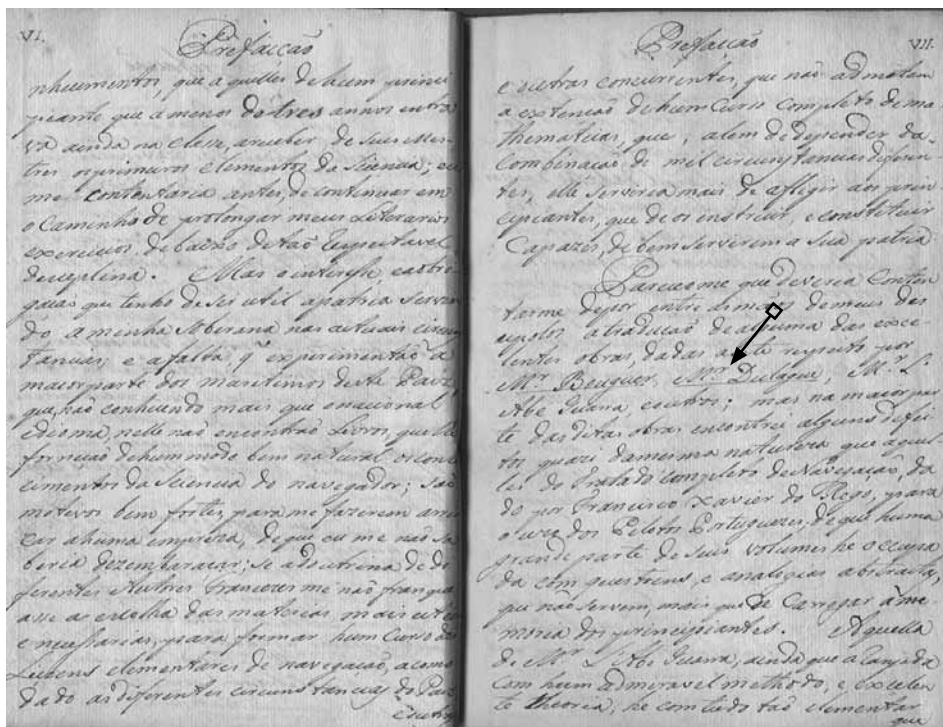 VI.
Prefacção
nhecimentos, que aquelles de hum princi
piante que a menos de tres annos entra
va ainda na classe, a receber de seus Mes
tres os primeiros elementos da Sciencia; eu
me contentaria antes, de continuar em
o Caminho de prolongar meus Literarios
exercicios, debaixo de taõ respeitavel
deceplina. Mas o interesse, e as obri
gacas que tenho de ser util a patria servin
do, a minha Soberana nas actuais circuns
tancias; e a falta, q' experimentaõ a
maior parte dos maritimos deste Paiz
que, naõ conhecendo mais que o nacional
idioma, nelle naõ encontraõ Livros, que lhe
forneçaõ de hum modo bem natural os conhe
cimentos da Sciencia do navegador; saõ
motivos bem fortes, para me fazerem arris
car a huma empreza, de que eu me naõ sa
beria dezembaraçar; se a doutrina de di
ferentes Authores Francezes me naõ franque
asse a escolha das materias mais uteis
e necessarias, para formar hum Curso de
Liçoens elementares de navegaçaõ, acomo
dado as diferentes circunstancias do Paiz
e outras
VII.
Prefacção
e outras concurrentes, que naõ admetem
a extençaõ de hum Curso Completo de ma
thematicas, que, além de depender da
Combinaçaõ de mil circunstancias diferen
tes, elle serveria mais de afligir aos prin
cipiantes, que de os instruir, e constituir
Capazes, de bem serverem a sua patria
Pareceome que deveria Conten
tarme de por entre as maos de meus des
cipolos a traduçaõ de alguma das exce
lentes obras, dadas a este respeito por
Mr. Bouguer, Mr. Dulague, Mr. L'
Abe Juana, e outros; mas na maior par
te das ditas obras encontrei alguns defei
tos quazi da mesma natureza que aquel
les do Tratado completo de Navegaçaõ, da
do por Francisco Xavier do Rego, para
o uzo dos Pilotos Portuguezes, de que huma
grande parte de seus volumes he occupa
da com questoens, e analogias abstractas,
que naõ servem, mais que de Carregar a me
moria dos principiantes. Aquella
de Mr. L'Abe Juana, ainda que arranjada
Com hum admeravel methodo, e, excelen
te theoria, he com tudo taõ elementar
que